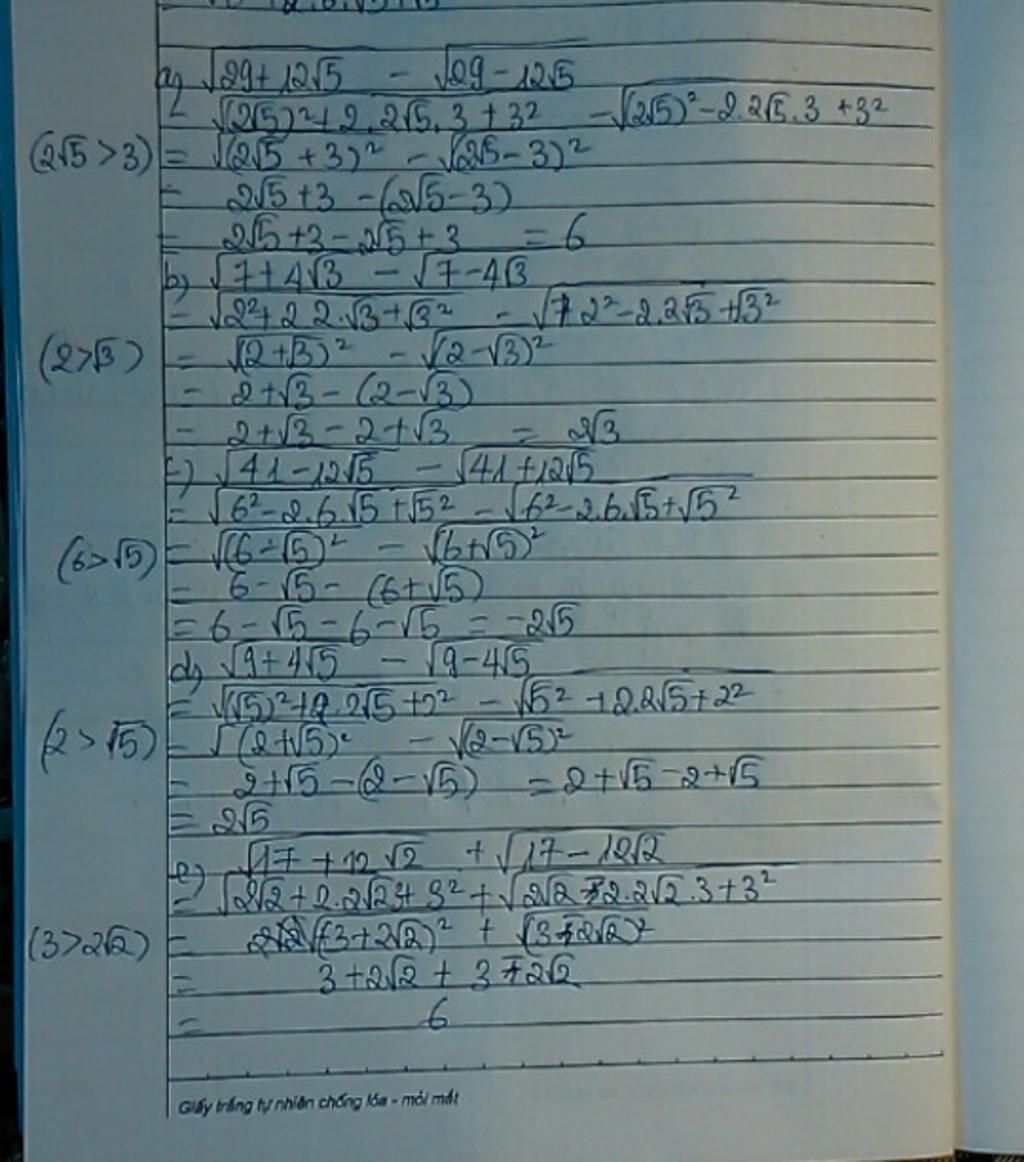 a) √29+12√5 - √29-12√5
= √(2√5)²+2.2√5.3+3² - √(2√5)²-2.2√5.3+3²
(2√5>3) = √(2√5+3)² - √(2√5-3)²
= 2√5+3-(2√5-3)
= 2√5+3-2√5+3 = 6
b) √7+4√3 - √7-4√3
= √2²+2.2.√3+√3² - √2²-2.2√3+√3²
(2>√3) = √(2+√3)² - √(2-√3)²
= 2+√3-(2-√3)
= 2+√3-2+√3 = 2√3
c) √41-12√5 - √41+12√5
= √6²-2.6.√5+√5² - √6²-2.6.√5+√5²
(6>√5) = √(6-√5)² - √(6+√5)²
= 6-√5-(6+√5)
= 6-√5-6-√5 = -2√5
d) √9+4√5 - √9-4√5
= √(√5)²+2.2√5+2² - √5²+2.2√5+2²
(2>√5) = √(2+√5)² - √(2-√5)²
= 2+√5-(2-√5) = 2+√5-2+√5
= 2√5
e) √17+12√2 + √17-12√2
= √2√2+2.2√2.3+3² + √2√2-2.2√2.3+3²
(3>2√2) = √(3+2√2)² + √(3-2√2)²
= 3+2√2+3-2√2
= 6
Giấy trắng tự nhiên chống lóa - mỏi mắt